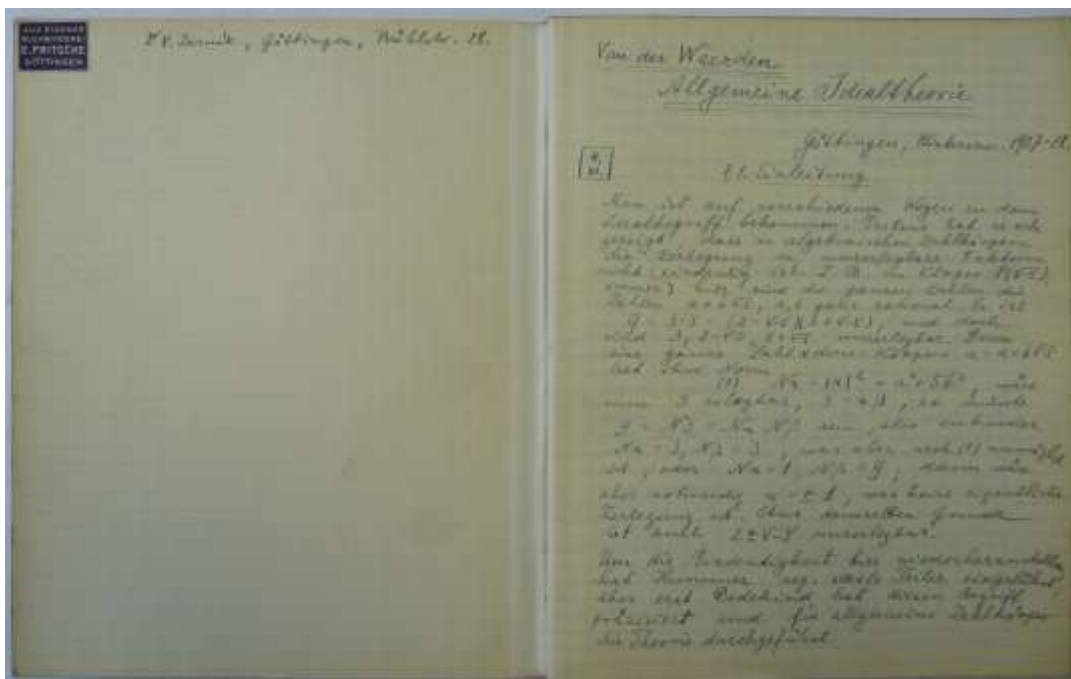 AUS EIGENER
BUCHBINDEREI
E. FRITSCHE
GÖTTINGEN
Dr V. Jarník, Göttingen, Mühlstr.
Van der Waerden
Allgemeine Idealtheorie
Göttingen, 1927-28.
§1. Einleitung
Man ist auf verschiedenen Wegen zu dem
Idealbegriff gekommen. Erstens hat es sich
gezeigt, dass in algebraischen Zahlkörpern
die Zerlegung in unzerlegbare Faktoren
nicht eindeutig ist. Z. B. im Körper
hier sind die ganzen Zahlen die
Zahlen a+b√-5, a, b ganz rational. Es ist
9 = 3·3 = (2-√-5)(2+√-5), und doch
sind 3, 2-√-5, 2+√-5 unzerlegbar. Denn
eine ganze Zahl dieses Körpers α = a+b√-5
hat ihre Norm
(1) Nα = |α|² = a²+5b², wäre
nun 3 zerlegbar, 3 = αβ, so würde
9 = N3 = Nα Nβ sein, also entweder
Nα = 3, Nβ = 3, was aber nach (1) unmöglich
ist, oder Nα = 1, Nβ = 9, dann wäre
aber notwendig α = ± 1, was keine eigentliche
Zerlegung ist. Aus demselben Grunde
ist auch 2±√-5 unzerlegbar.
Um die Eindeutigkeit hier wiederherzustellen
hat Kummer sog. ideale Teiler eingeführt,
aber erst Dedekind hat diesen Begriff
präzisiert und für allgemeine Zahlkörper
die Theorie durchgeführt.